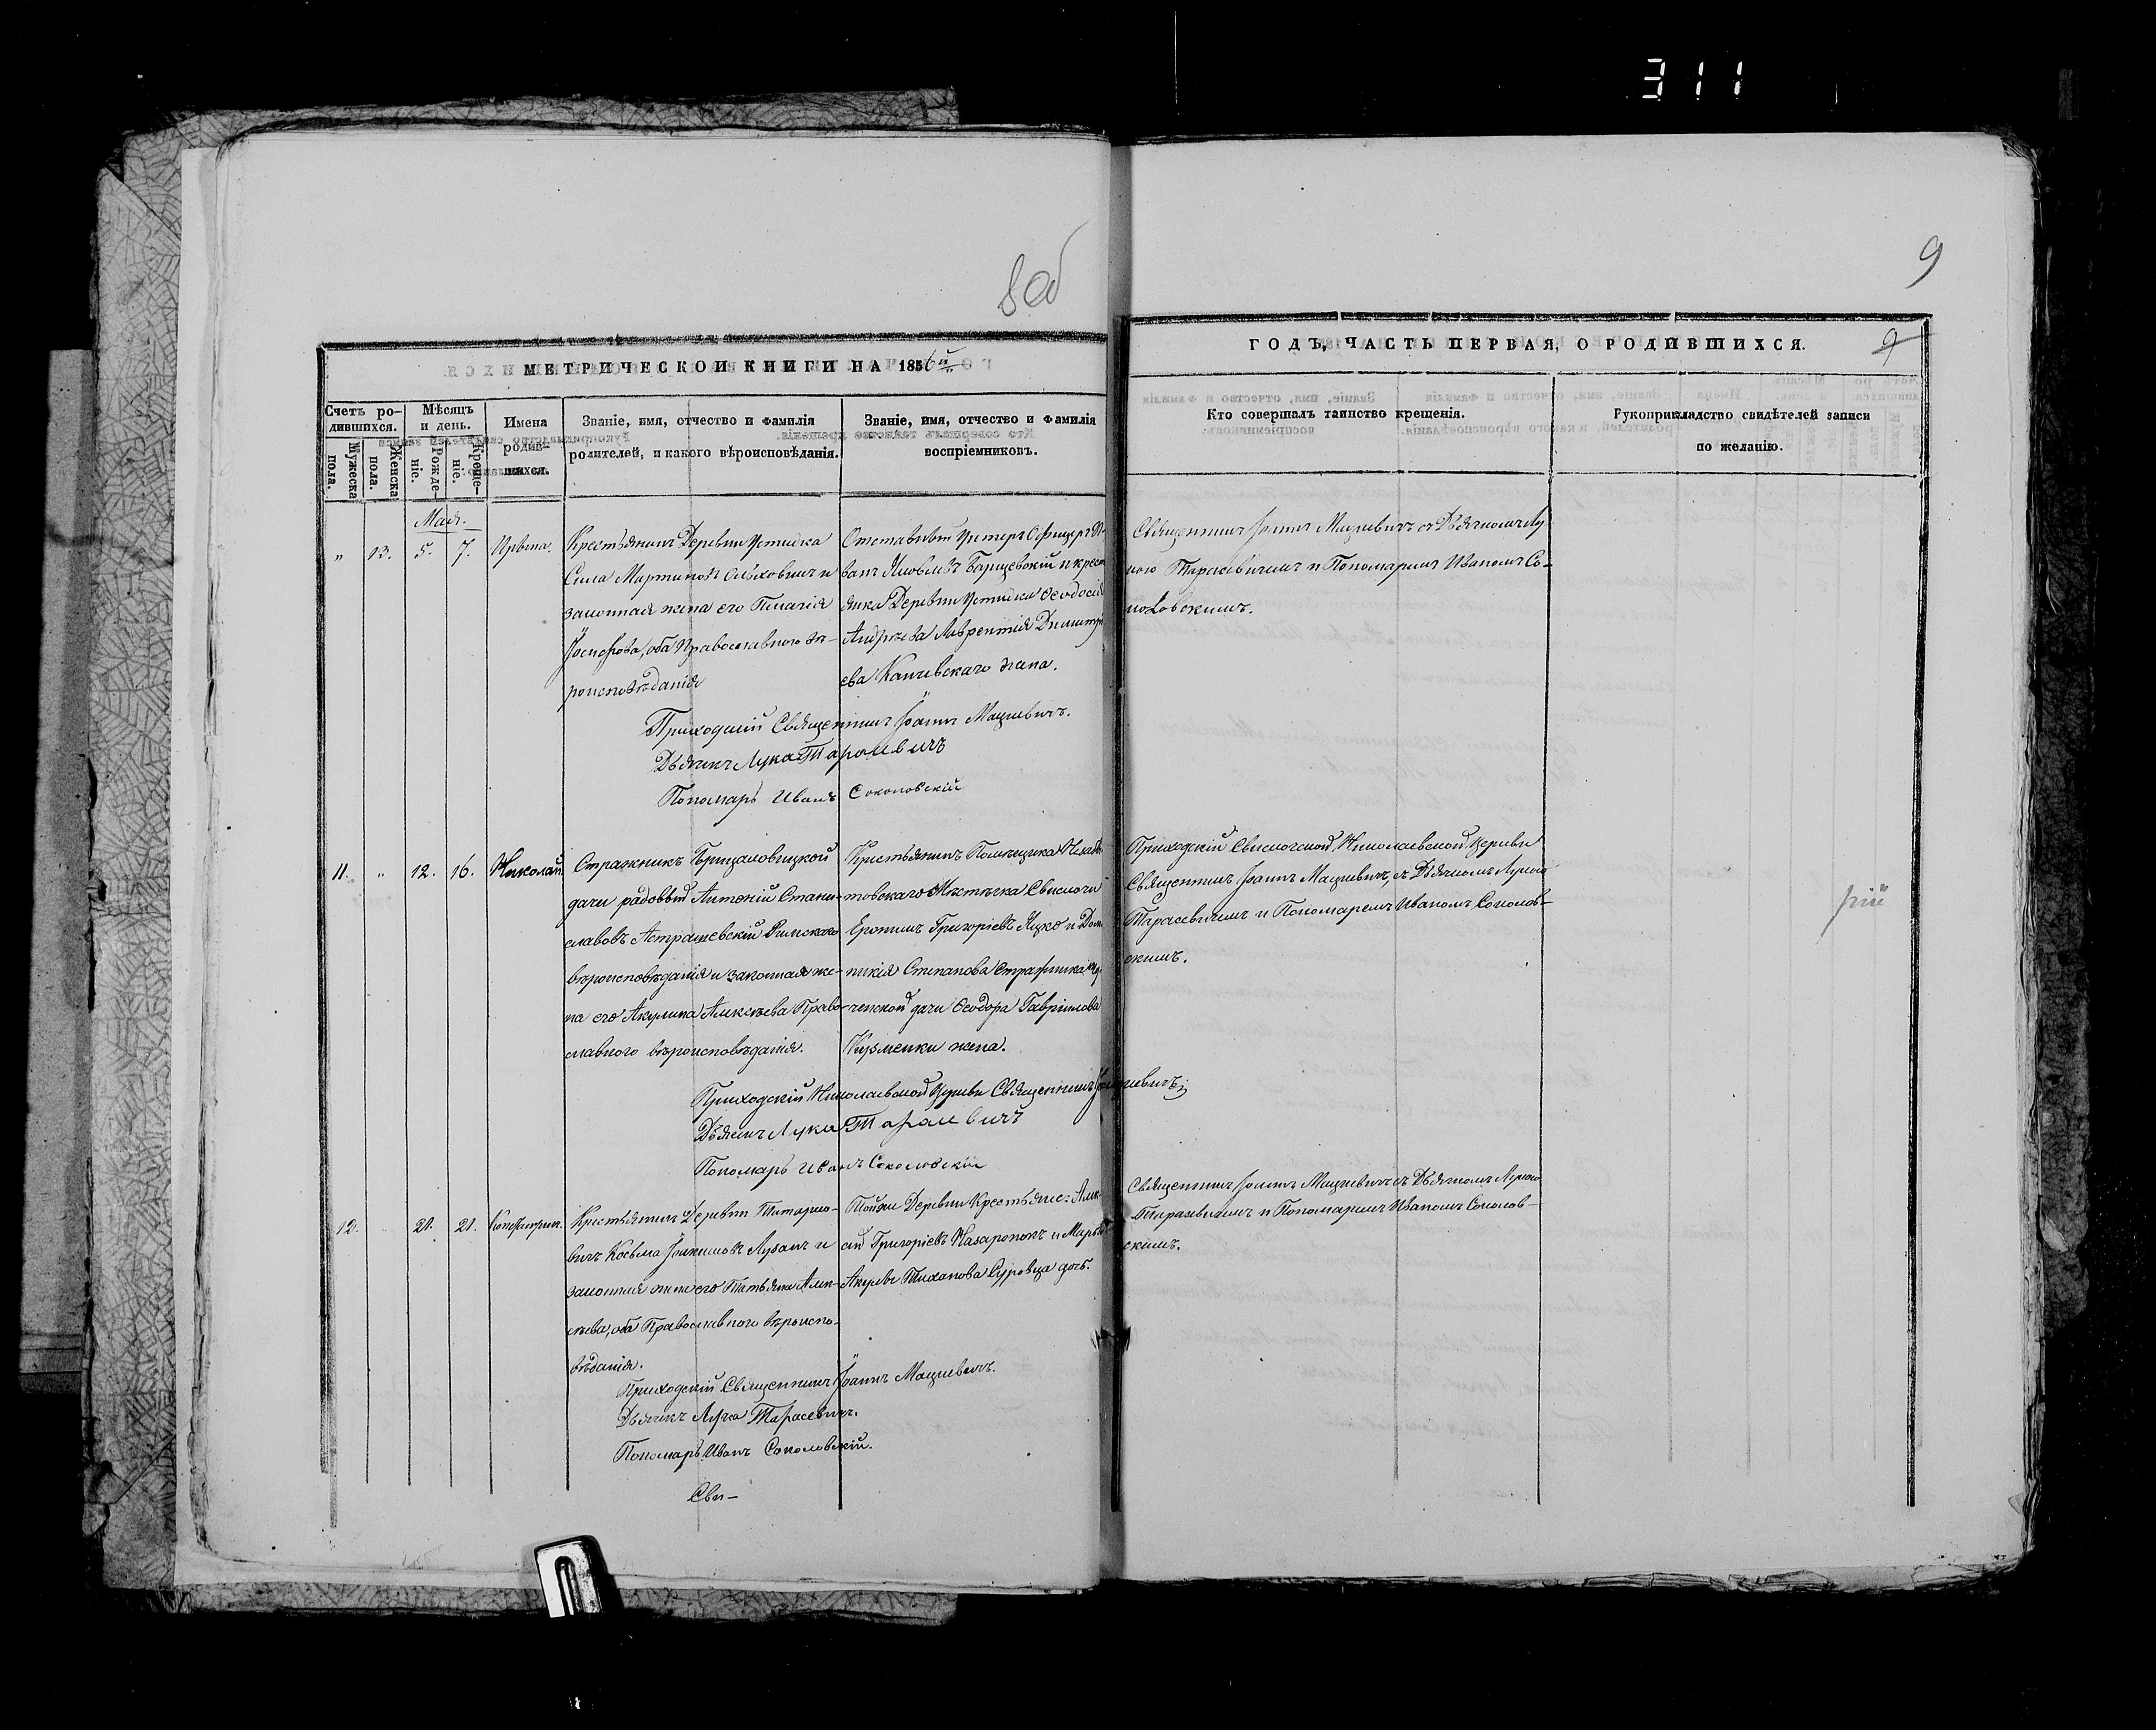 311
8 об
9
МЕТРИЧЕСКОЙ КНИГИ НА 1856й
ГОДЪ, ЧАСТЬ ПЕРВАЯ, О РОДИВШИХСЯ.
9
Счетъ ро-
дившихся.
Мужеска
пола.
Женска
пола.
Мѣсяцъ
и день.
Рожде-
ніе.
Креще-
ніе.
Имена
родив-
шихся.
Званіе, имя, отчество и фамилія
родителей, и какого вѣроисповѣданія.
Званіе, имя, отчество и фамилія
воспріемниковъ.
Кто совершалъ таинство крещенія.
Рукоприкладство свидѣтелей записи
по желанію.
Мая.
" 13. 5. 7. Ирвина.
Крестьянинъ Деревни Устилка
Сила Мартиновъ и
законная жена его Пелагія
Іосифова, оба Православнаго вѣ-
роисповѣданія
Отставный Унтеръ Офицеръ И-
ванъ Яковлевъ Барщевскій и крест
янка Деревни Устилка Ѳеодосія
Андреева Лаврентія Дмитрі
ева Канчевскаго жена.
Священникъ Іоаннъ Мацкевичъ съ Дьячкомъ Лу
кою Тарасевичемъ и Пономаремъ Иваномъ Со-
коловскимъ.
Приходскій Священникъ Іоаннъ Мацкевичъ.
Дьячекъ Лука Тарасевичъ
Пономарь Иванъ Соколовскій
11. " 12. 16. Николай
Стражникъ Брицаловицкой
дачи рядовый Антоній Стани-
славовъ Астрашевскій Римскаго
вѣроисповѣданія и законная же-
на его Акулина Алексѣева Право-
славнаго вѣроисповѣданія.
Крестьянинъ Помѣщика
товскаго Мѣстечка Свислочи
Еронимъ Григоріевъ Яцко и Дом
никія Степанова стражника
ченской дачи Ѳеодора Гавріилова
Кузменки жена.
Приходскій Свислочской Николаевской Церкви
Священникъ Іоаннъ Мацкевичъ, съ Дьячкомъ Лукою
Тарасевичемъ и Пономаремъ Иваномъ Соколов-
скимъ.
Приходскій Николаевской Церкви Священникъ Мацкевичъ;
Дьячекъ Лука Тарасевичъ
Пономарь Иванъ Соколовскій
12. 21. 21. Константинъ.
Крестьянинъ Деревни Татарко-
вичъ Косьма Іоакимовъ Лузанъ и
законная жена его Татьяна Алек-
сѣева, оба Православнаго вѣроиспо-
вѣданія.
Тойже Деревни Крестьяне: Алек-
сѣй Григоріевъ Назаронокъ и Марья
Тихонова Суровца дочь.
Священникъ Іоаннъ Мацкевичъ съ Дьячкомъ Лукою
Тарасевичемъ и Пономаремъ Иваномъ Соколов-
скимъ.
Приходскій Священникъ Іоаннъ Мацкевичъ.
Дьячекъ Лука Тарасевичъ.
Пономарь Иванъ Соколовскій.
Сви-